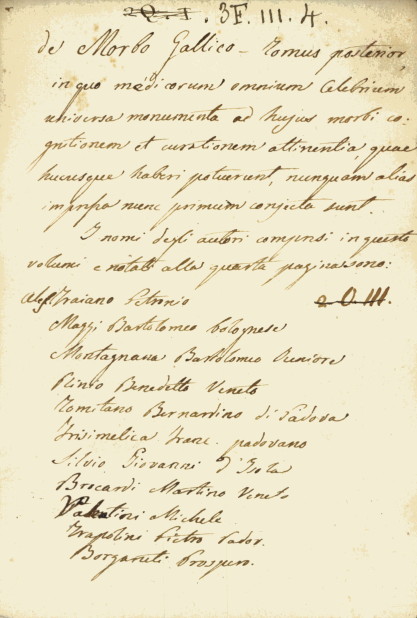 2 Q. I. 3F. III. 4.
de Morbo Gallico - Tomus posterior,
in quo medicorum omnium celebrium
universa monumenta ad hujus morbi co-
gnitionem et curationem attinentia, quae
hucusque haberi potuerunt, nunquam alias
impressa nunc primum conjecta sunt.
I nomi degli autori compresi in questo
volumi e notati alla quarta pagina sono:
Traiano Petronio 2 O. III.
Maggi Bartolomeo bolognese
Montagnana Bartolomeo Iuniore
Rinio Benedetto Veneto
Tomitano Bernardino di Padova
Frisimelica Franc. padovano
Silvio Giovanni d'Isola
Brocardi Martino Veneto
Valentini Michele
Trapolini Pietro Pador.
Borgaruti Prospero.